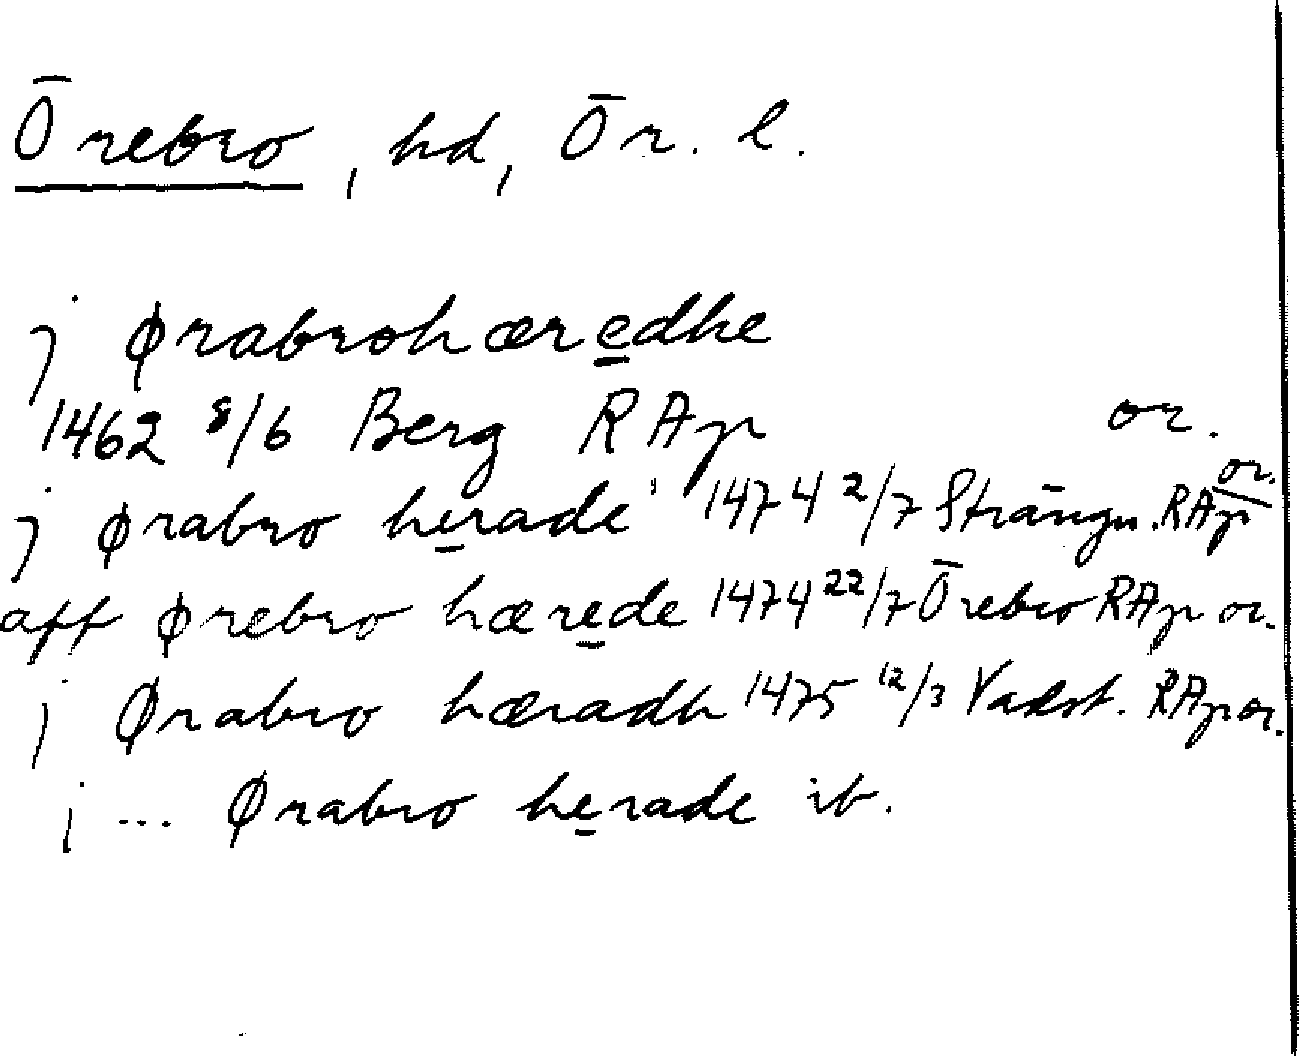 Örebro, hd, Ör. l.
j ørabrohæredhe
1462 8/6 Berg RAp or.
j ørabro herade 1474 2/7 Strängn. RAp or.
aff ørebro hærede 1474 22/7 Örebro RAp or.
j Ørabro hæradh 1475 12/3 Vadst. RAp or.
j ... Ørabro herade ib.